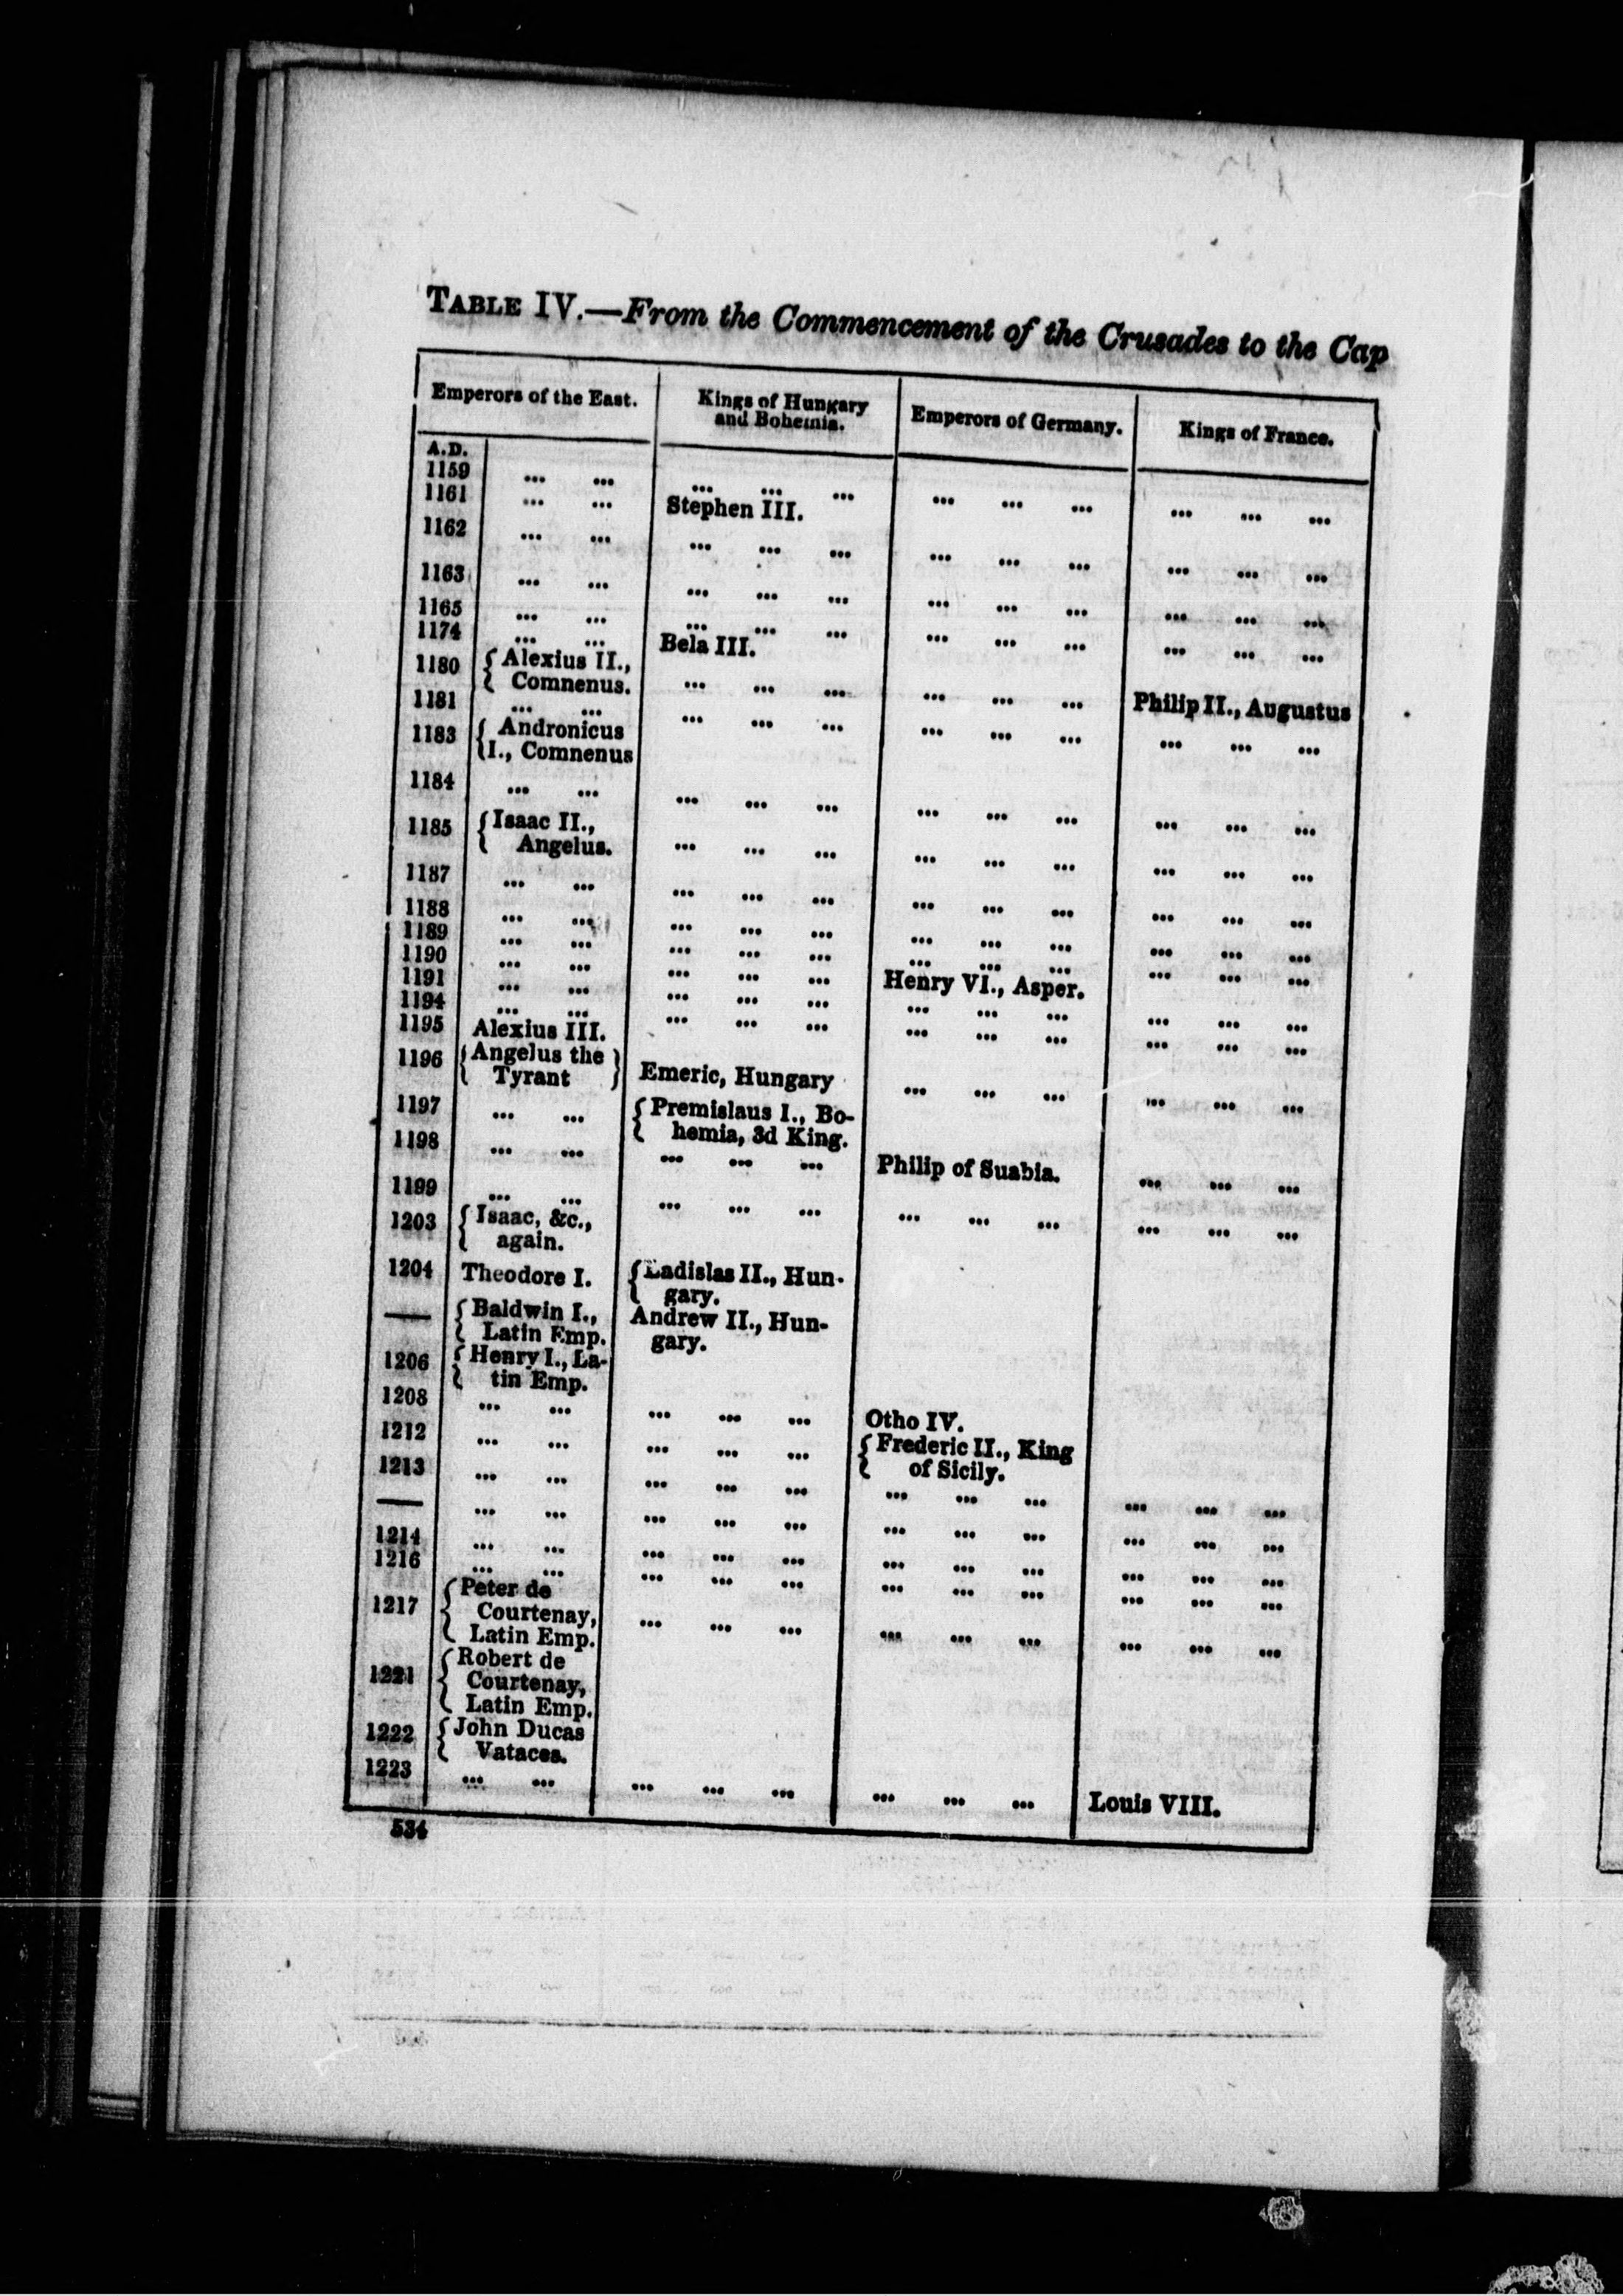 TABLE IV.—From the Commencement of the Crusades to the Cap
Emperors of the East. Kings of Hungary and Bohemia. Emperors of Germany. Kings of France.
A.D.
1159 ... ... ... ... ...
1161 ... ... Stephen III. ... ... ... ... ... ...
1162 ... ... ... ... ... ... ... ... ... ... ...
1163 ... ... ... ... ... ... ... ... ... ... ...
1165 ... ... ... ... ... ... ... ... ... ... ...
1174 ... ... Bela III.
1180 { Alexius II., Comnenus. ... ... ... ... ... ... Philip II., Augustus
1181 ... ... ... ... ... ... ... ... ... ... ...
1183 { Andronicus I., Comnenus
1184 ... ... ... ... ... ... ... ... ... ... ...
1185 { Isaac II., Angelus. ... ... ... ... ... ... ... ... ...
1187 ... ... ... ... ... ... ... ... ... ... ...
1188 ... ... ... ... ... ... ... ... ... ... ...
1189 ... ... ... ... ... ... ... ... ... ... ...
1190 ... ... ... ... ... Henry VI., Asper.
1191 ... ... ... ... ... ... ... ... ... ... ...
1194 ... ... ... ... ... ... ... ... ... ... ...
1195 Alexius III.
1196 { Angelus the Tyrant } Emeric, Hungary ... ... ... ... ... ...
1197 ... ... { Premislaus I., Bohemia, 3d King.
1198 ... ... ... ... ... Philip of Suabia. ... ... ...
1199 ... ... ... ... ... ... ... ... ... ... ...
1203 { Isaac, &c., again.
1204 Theodore I. { Ladislas II., Hungary.
—— { Baldwin I., Latin Emp. Andrew II., Hungary.
1206 { Henry I., Latin Emp.
1208 ... ... ... ... ... Otho IV.
1212 ... ... ... ... ... { Frederic II., King of Sicily.
1213 ... ... ... ... ... ... ... ... ... ... ...
—— ... ... ... ... ... ... ... ... ... ... ...
1214 ... ... ... ... ... ... ... ... ... ... ...
1216 ... ... ... ... ... ... ... ... ... ... ...
1217 { Peter de Courtenay, Latin Emp. ... ... ... ... ... ... ... ... ...
1221 { Robert de Courtenay, Latin Emp.
1222 { John Ducas Vataces.
1223 ... ... ... ... ... ... ... ... Louis VIII.
534